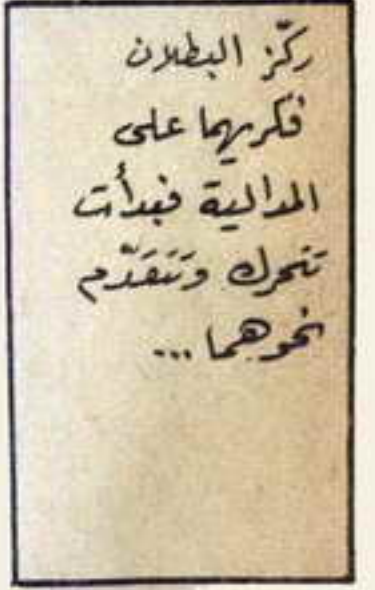 ركّز البطلان
فكريهما على
المدالية فبدأت
تتحرك وتَتَقَدّم
نحوهما ...